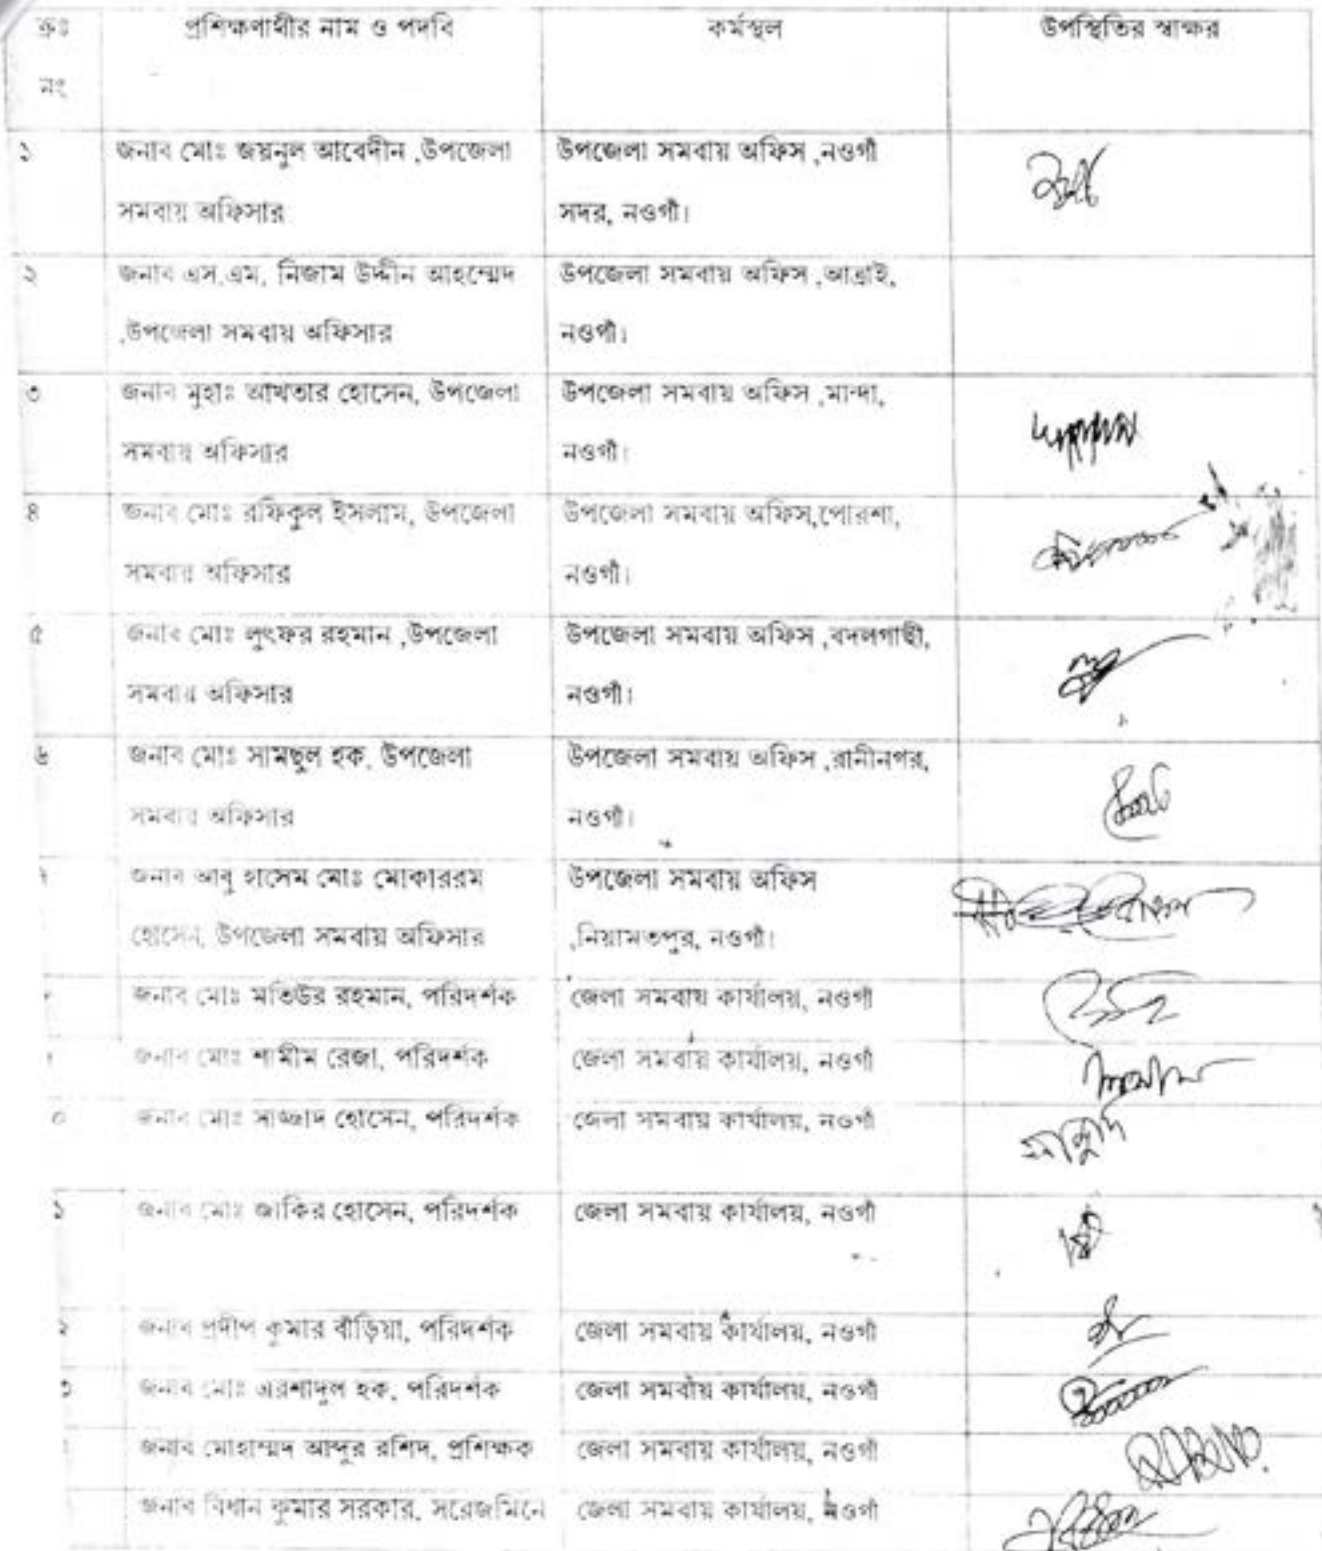 ক্রঃ প্রশিক্ষণার্থীর নাম ও পদবি কর্মস্থল উপস্থিতির স্বাক্ষর
নং
১ জনাব মোঃ জয়নুল আবেদীন ,উপজেলা উপজেলা সমবায় অফিস ,নওগাঁ
সমবায় অফিসার সদর, নওগাঁ।
২ জনাব এস.এম. নিজাম উদ্দীন আহম্মেদ উপজেলা সমবায় অফিস ,আত্রাই,
,উপজেলা সমবায় অফিসার নওগাঁ।
৩ জনাব মুহাঃ আখতার হোসেন, উপজেলা উপজেলা সমবায় অফিস ,মান্দা,
সমবায় অফিসার নওগাঁ।
৪ জনাব মোঃ রফিকুল ইসলাম, উপজেলা উপজেলা সমবায় অফিস,পোরশা,
সমবায় অফিসার নওগাঁ।
৫ জনাব মোঃ লুৎফর রহমান ,উপজেলা উপজেলা সমবায় অফিস ,বদলগাছী,
সমবায় অফিসার নওগাঁ।
৬ জনাব মোঃ সামছুল হক, উপজেলা উপজেলা সমবায় অফিস ,রানীনগর,
সমবায় অফিসার নওগাঁ।
জনাব আবু হাসেম মোঃ মোকাররম উপজেলা সমবায় অফিস
হোসেন, উপজেলা সমবায় অফিসার ,নিয়ামতপুর, নওগাঁ।
জনাব মোঃ মতিউর রহমান, পরিদর্শক জেলা সমবায় কার্যালয়, নওগাঁ
জনাব মোঃ শামীম রেজা, পরিদর্শক জেলা সমবায় কার্যালয়, নওগাঁ
০ জনাব মোঃ সাজ্জাদ হোসেন, পরিদর্শক জেলা সমবায় কার্যালয়, নওগাঁ
১ জনাব মোঃ জাকির হোসেন, পরিদর্শক জেলা সমবায় কার্যালয়, নওগাঁ
২ জনাব প্রদীপ কুমার বাঁড়িয়া, পরিদর্শক জেলা সমবায় কার্যালয়, নওগাঁ
৩ জনাব মোঃ এরশাদুল হক, পরিদর্শক জেলা সমবায় কার্যালয়, নওগাঁ
জনাব মোহাম্মদ আব্দুর রশিদ, প্রশিক্ষক জেলা সমবায় কার্যালয়, নওগাঁ
জনাব বিধান কুমার সরকার, সরেজমিনে জেলা সমবায় কার্যালয়, নওগাঁ